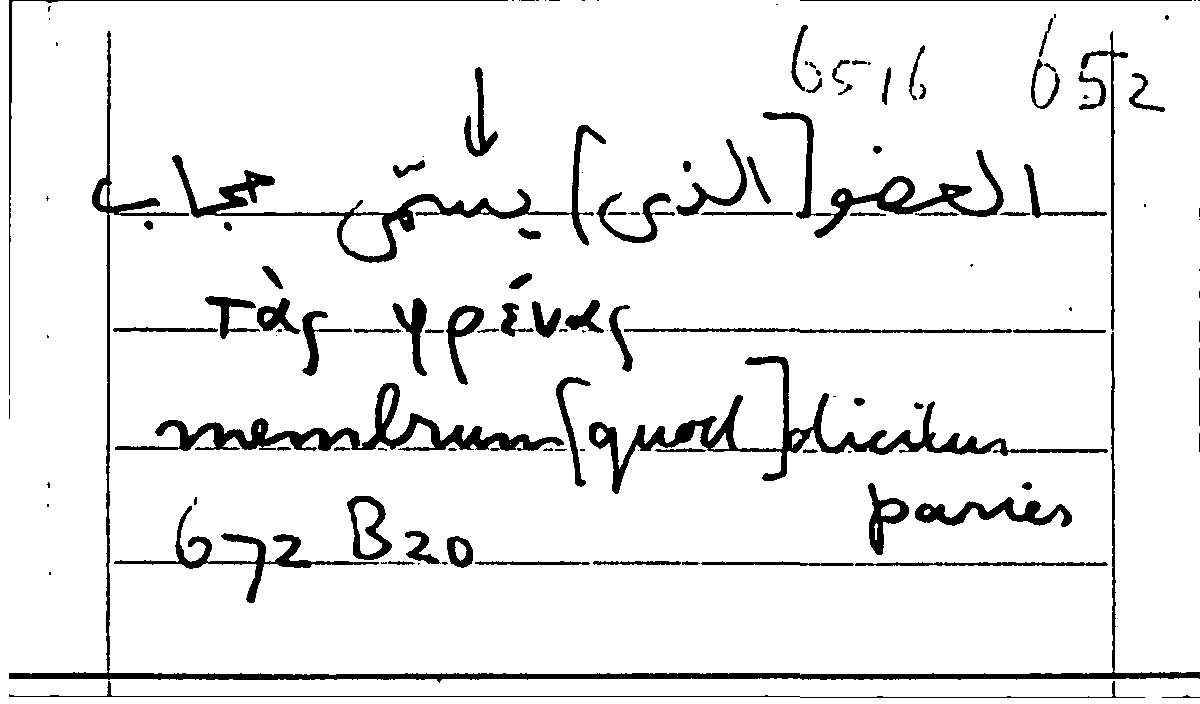 6516 652
العضو [الذى] يسمّى حجاب
τὰς φρένας
membrum [quod] dicitur
paries
672 B20